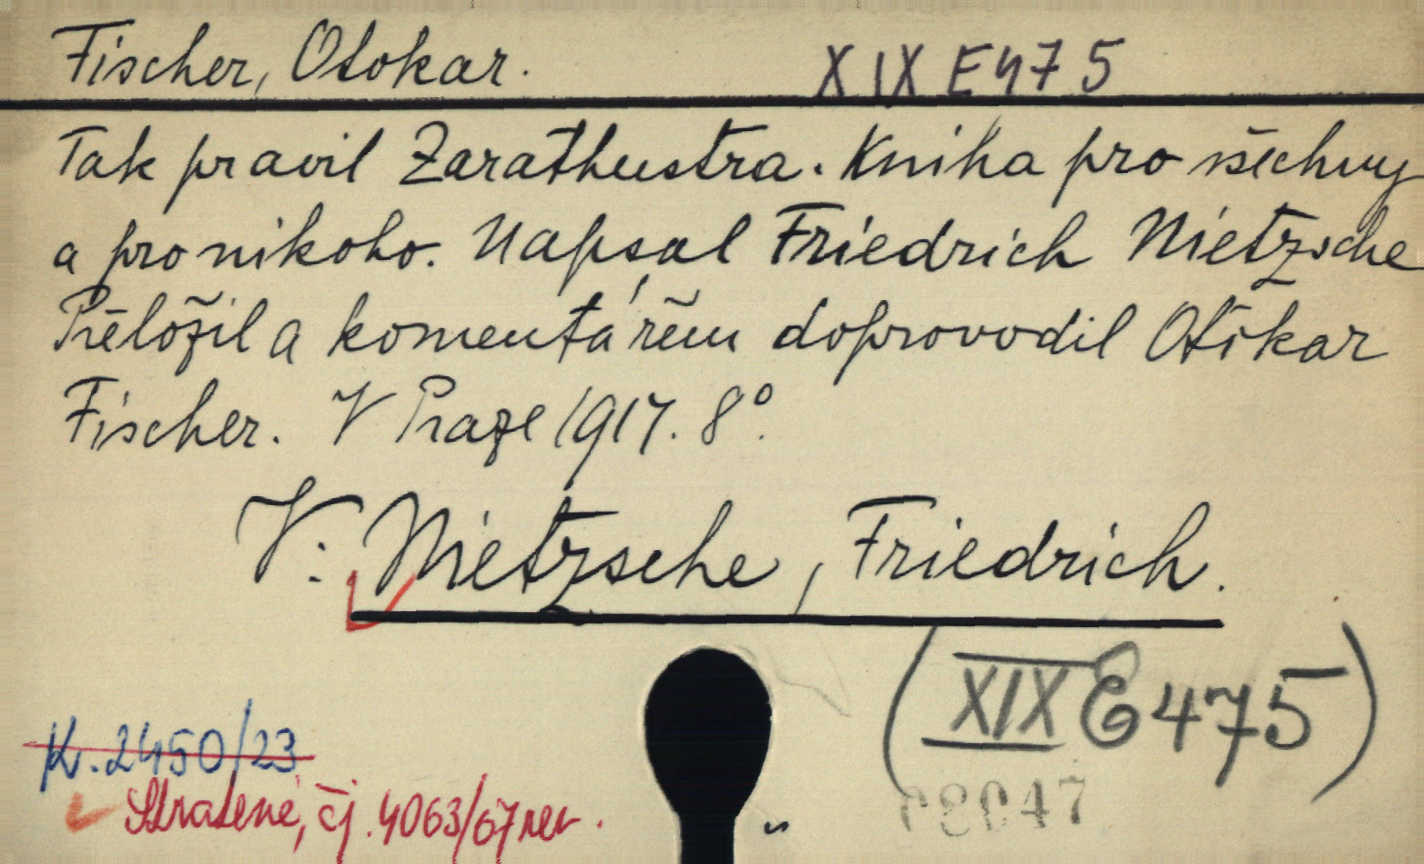 Fischer, Otokar.
XIX E 475
Tak pravil Zarathustra. Kniha pro všechny
a pro nikoho. Napsal Friedrich Nietzsche
Přeložil a komentářem doprovodil Otokar
Fischer. V Praze 1917. 8°.
V: Nietzsche, Friedrich.
(XIX E 475)
K. 2450/23
Stratené, čj. 4063/67 rev.